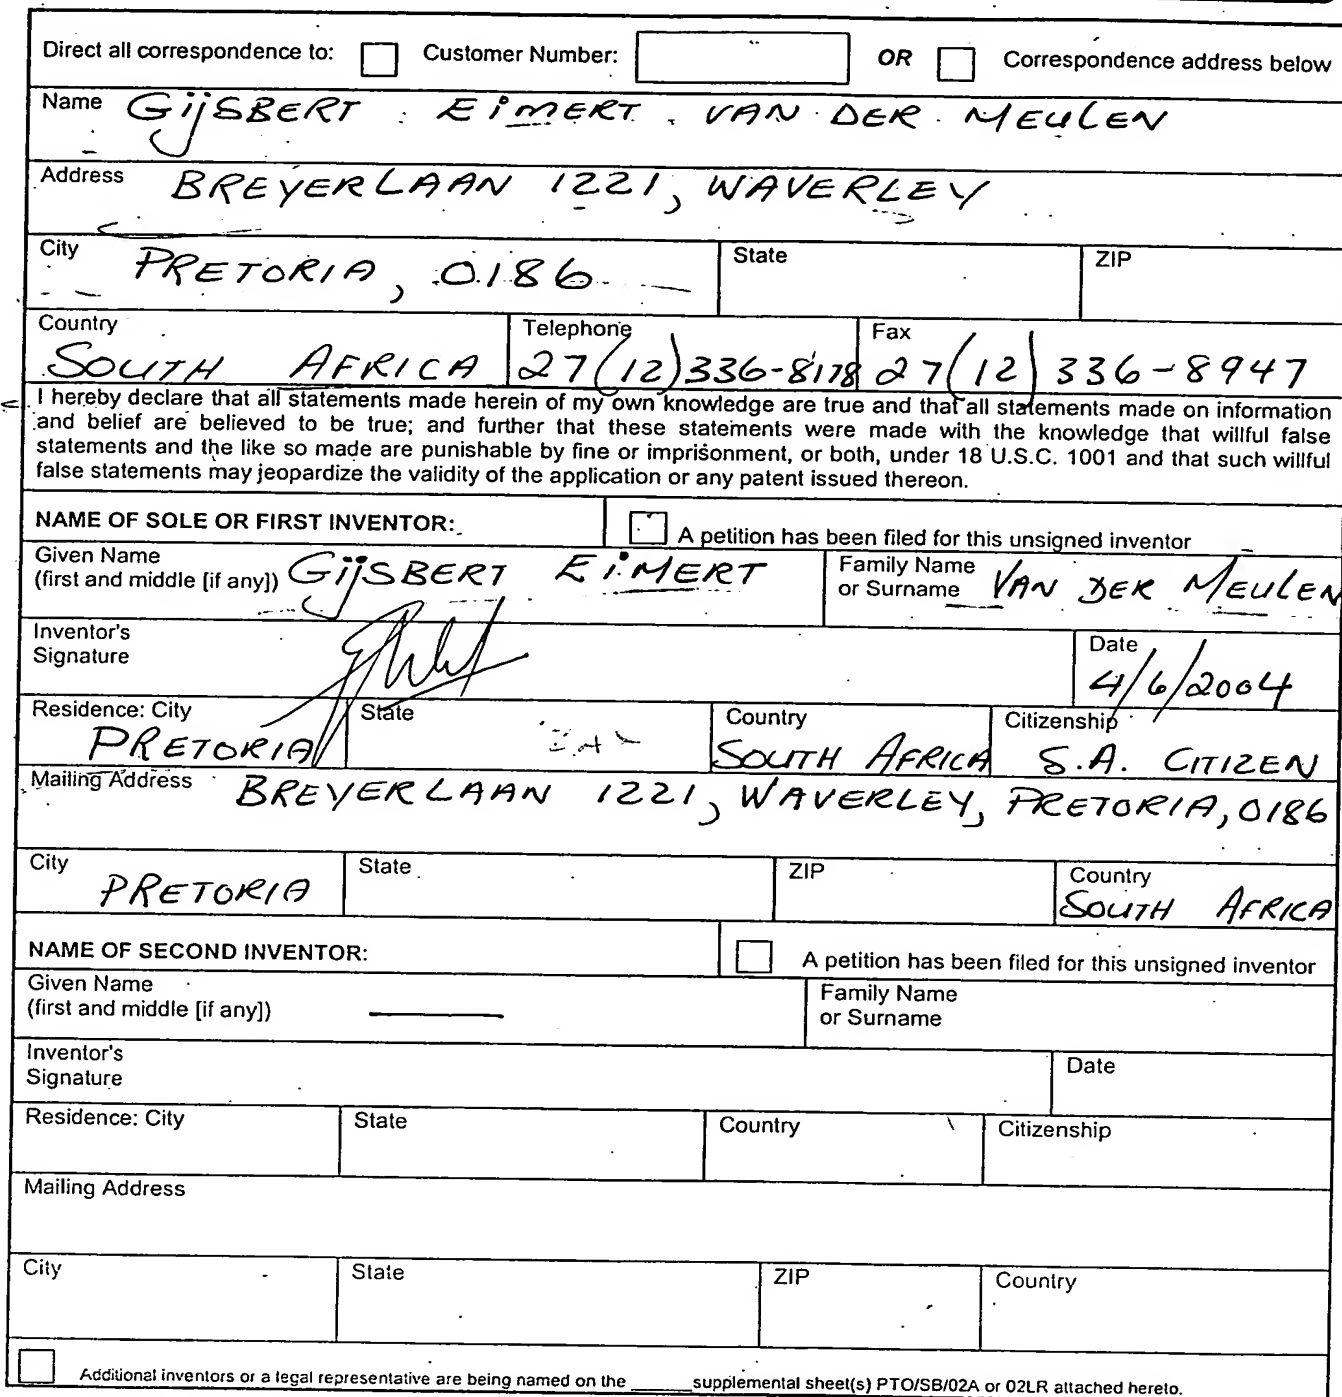 Direct all correspondence to: Customer Number: OR Correspondence address below
Name GijSBERT EiMERT VAN DER MEULEN
Address BREYERLAAN 1221, WAVERLEY
City PRETORIA, 0186 State ZIP
Country SOUTH AFRICA Telephone 27(12)336-8178 Fax 27(12) 336-8947
I hereby declare that all statements made herein of my own knowledge are true and that all statements made on information
and belief are believed to be true; and further that these statements were made with the knowledge that willful false
statements and the like so made are punishable by fine or imprisonment, or both, under 18 U.S.C. 1001 and that such willful
false statements may jeopardize the validity of the application or any patent issued thereon.
NAME OF SOLE OR FIRST INVENTOR: A petition has been filed for this unsigned inventor
Given Name
(first and middle [if any]) GijSBERT EiMERT Family Name
or Surname VAN DER MEULEN
Inventor's
Signature Date
4/6/2004
Residence: City PRETORIA State Country SOUTH AFRICA Citizenship S.A. CITIZEN
Mailing Address BREYERLAAN 1221, WAVERLEY, PRETORIA, 0186
City PRETORIA State ZIP Country SOUTH AFRICA
NAME OF SECOND INVENTOR: A petition has been filed for this unsigned inventor
Given Name
(first and middle [if any]) Family Name
or Surname
Inventor's
Signature Date
Residence: City State Country Citizenship
Mailing Address
City State ZIP Country
Additional inventors or a legal representative are being named on the ______ supplemental sheet(s) PTO/SB/02A or 02LR attached hereto.